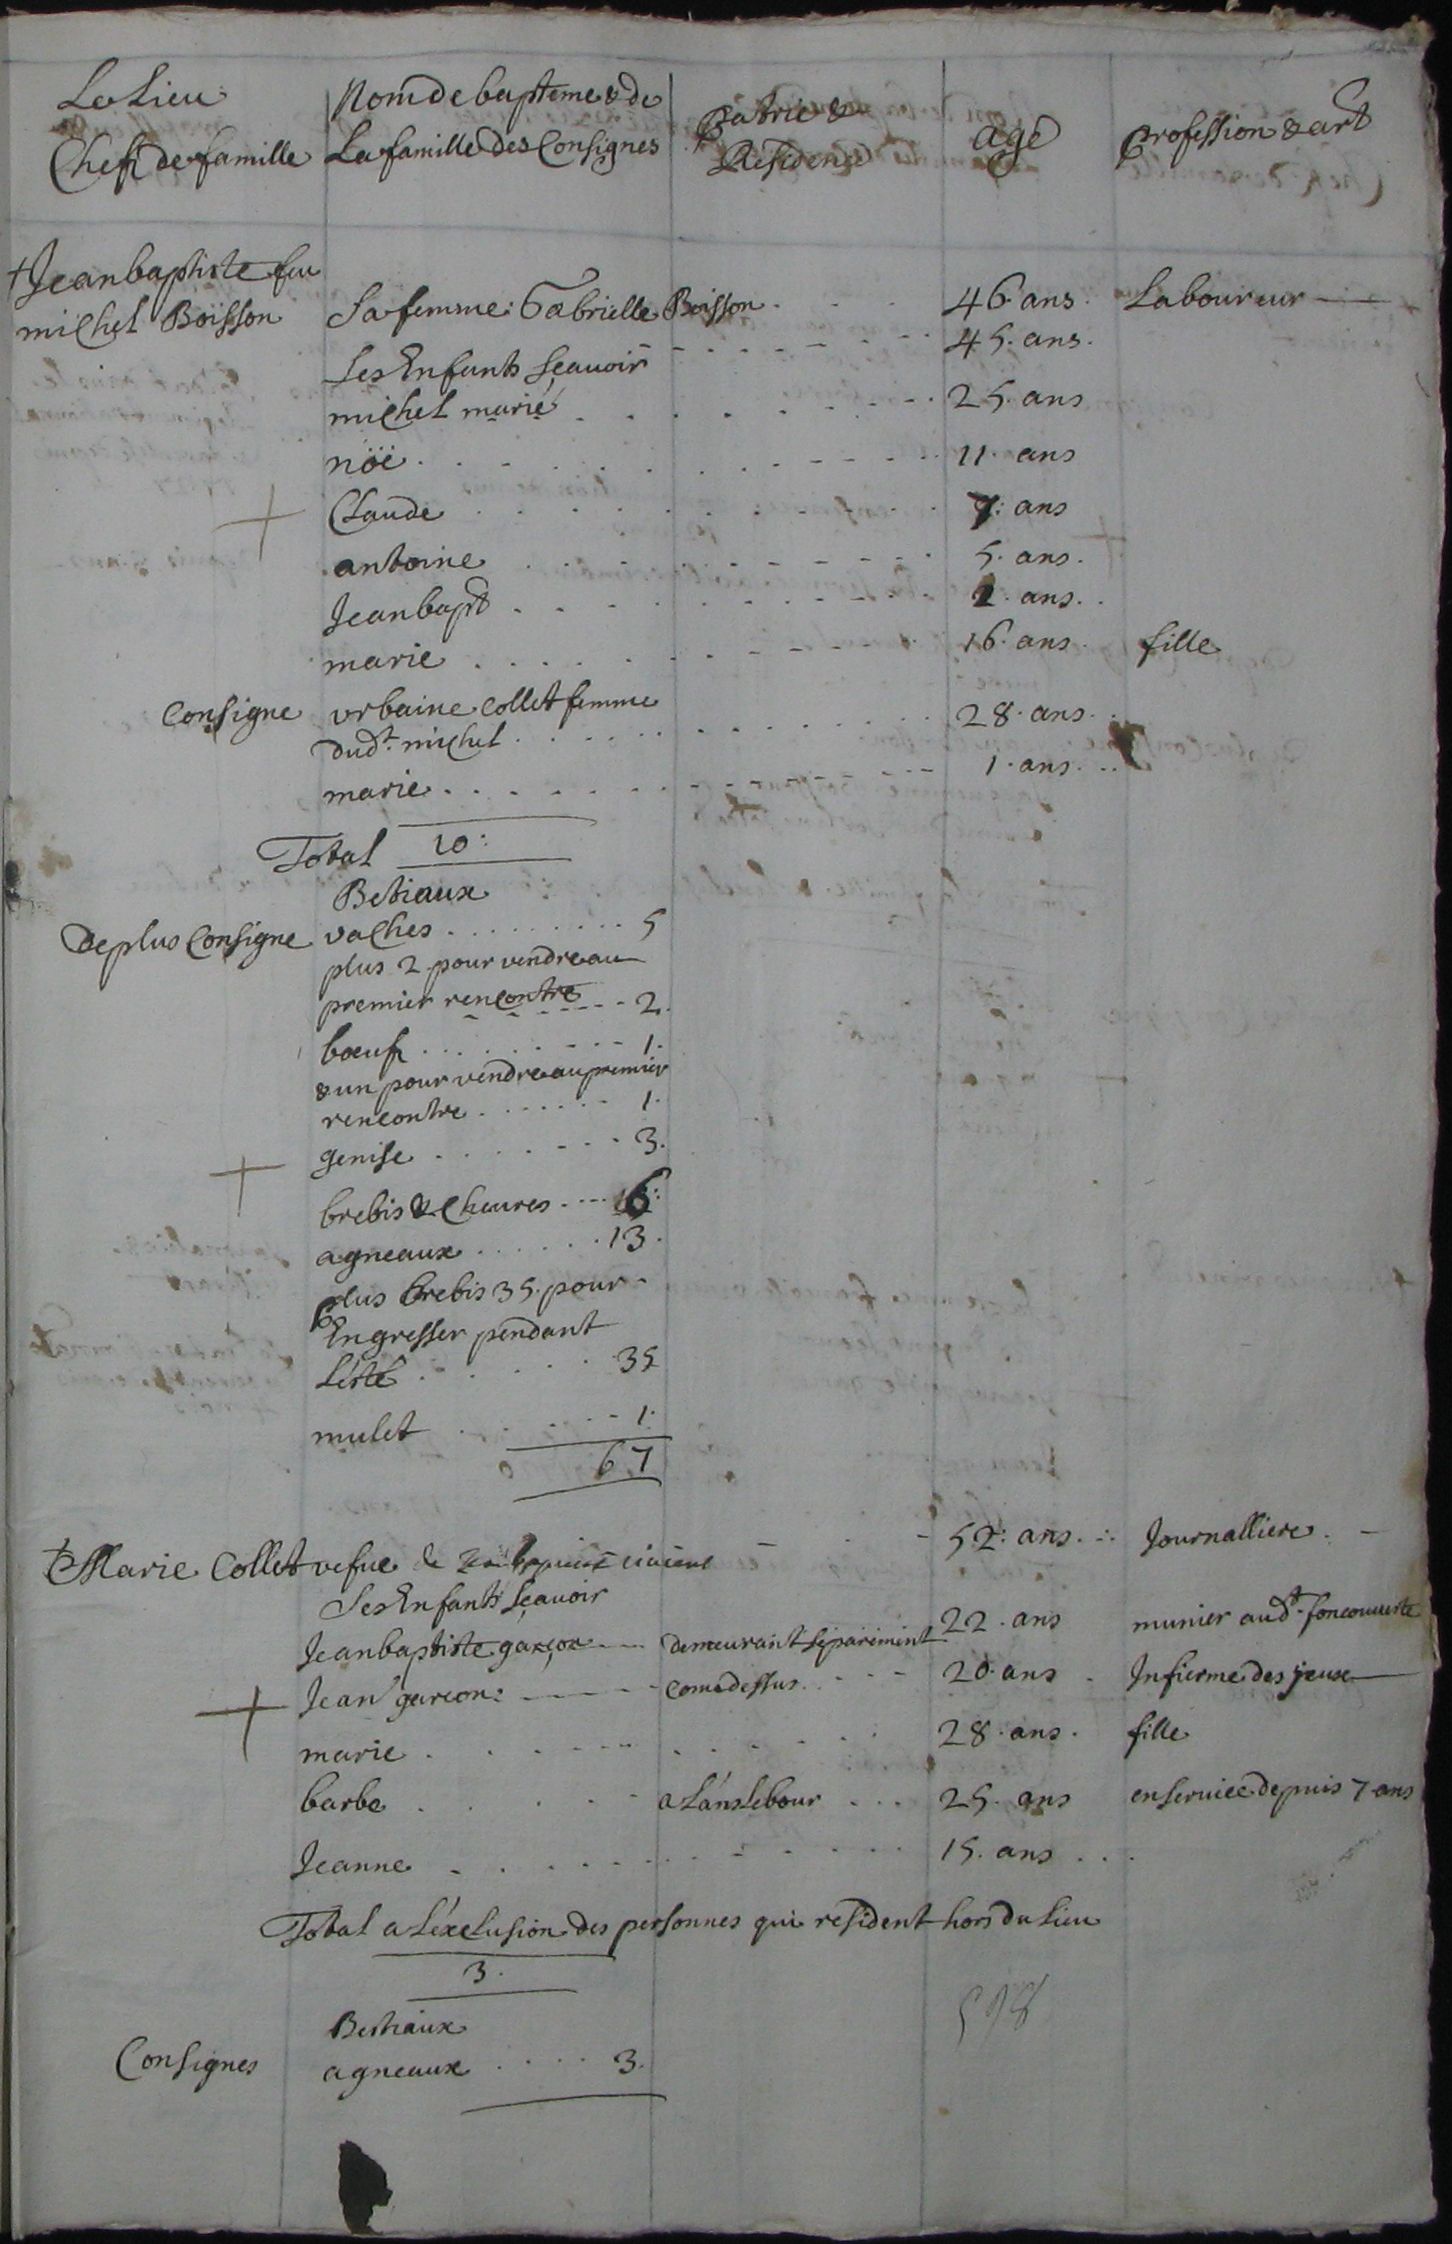 Le Lieu Nom de bapteme & de Patrie & age profession & art
Chefs de famille La famille des Consignes Residence
+ Jean baptiste feu 46 ans. Laboureur
michel Boisson Sa femme: Gabrielle Boisson 45. ans.
Ses Enfants sçauoir
michel marié 25. ans
nöe 11. ans
Claude 7: ans
antoine 5. ans.
Jean bapt 2. ans.
marie 16. ans. fille
Consigne vrbaine Collet femme
dud.t michel 28. ans.
marie 1. ans.
Total 10:
Betiaux
de plus Consigne vaches 5
plus 2 pour vendre au
premier rencontre 2.
bœufs 1.
& un pour vendre au premier
rencontre 1.
genise 3.
brebis & Cheures 6:
agneaux 13.
plus brebis 35. pour
Engresser pendant
L'été 35
mulet 1.
67
+ Marie Collet vefue de 52: ans. Journalliere.
Ses Enfants sçauoir
Jean baptiste garçon demeurant séparément 22. ans munier aud.t foncouuerte
Jean garcon: come dessus 20. ans Infirme des yeux
marie 28. ans. fille
barbe a Lanslebour 25. ans en seruice depuis 7 ans
Jeanne 15. ans
Total a L'éxclusion des personnes qui resident hors du Lieu
3.
598
Bestiaux
Consignes agneaux 3.